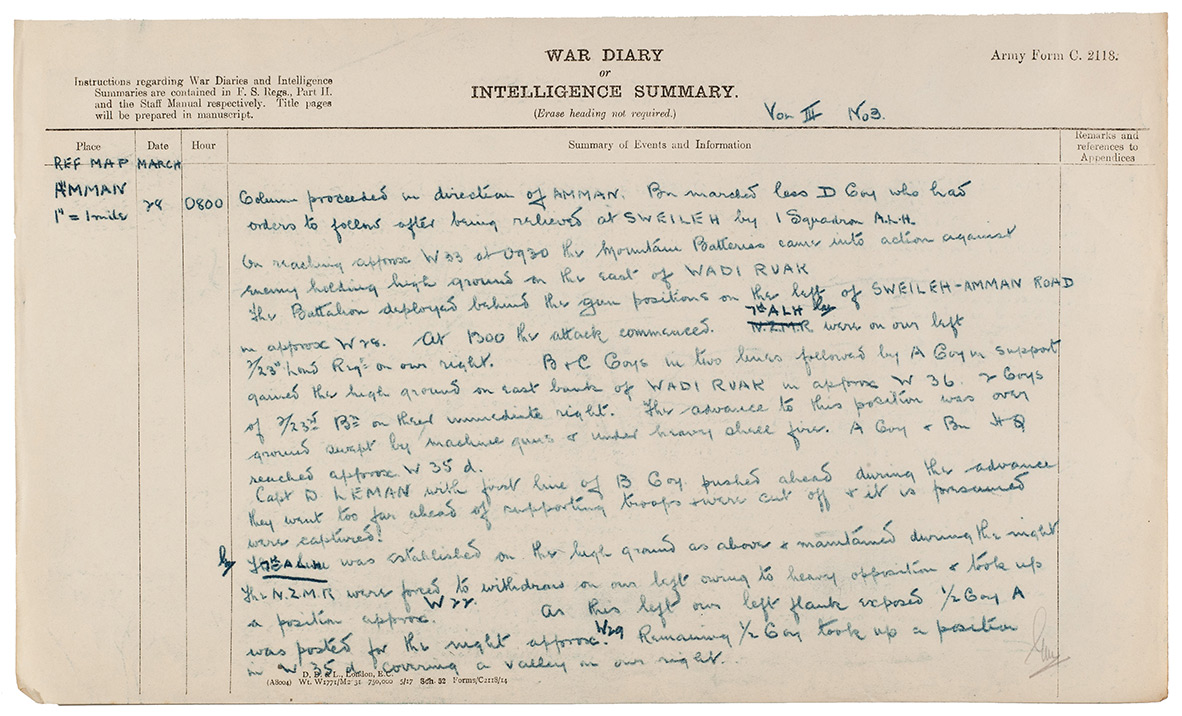 WAR DIARY
or
INTELLIGENCE SUMMARY.
(Erase heading not required.)
Army Form C. 2118.
Instructions regarding War Diaries and Intelligence
Summaries are contained in F. S. Regs., Part II.
and the Staff Manual respectively. Title pages
will be prepared in manuscript.
Vol III No3.
Place Date Hour Summary of Events and Information Remarks and
references to
Appendices
REF MAP MARCH
AMMAN 28 0800
1" = 1 mile
Column proceeded in direction of AMMAN. Bn marched less D Coy who had
orders to follow after being relieved at SWEILEH by 1 Squadron A.L.H.
On reaching approx W33 at 0930 the Mountain Batteries came into action against
enemy holding high ground on the east of WADI RUAK
The Battalion deployed behind the gun positions on the left of SWEILEH-AMMAN ROAD
in approx W28. At 1300 the attack commenced. 7th ALH N.Z.M.R were on our left
2/23rd Lond Regt on our right. B & C Coys in two lines followed by A Coy in support
gained the high ground on east bank of WADI RUAK in approx W 36. 2 Coys
of 2/23rd Bn on their immediate right. The advance to this position was over
ground swept by machine guns & under heavy shell fire. A Coy & Bn HQ
reached approx W 35 d.
Capt D. LEMAN with first line of B Coy pushed ahead during the advance
they went too far ahead of supporting troops & were cut off & it is presumed
were captured.
was established on the high ground as above & maintained during the night
The N.Z.M.R were forced to withdraw on our left owing to heavy opposition & took up
a position approx. W22. As this left our left flank exposed 1/2 Coy A
was posted for the night approx. W29 Remaining 1/2 Coy took up a position
in W 35 d covering a valley on our right.
D. D. & L., London, E.C.
(A8004) Wt. W1771/M2 31 750,000 5/17 Sch. 52 Forms/C2118/14